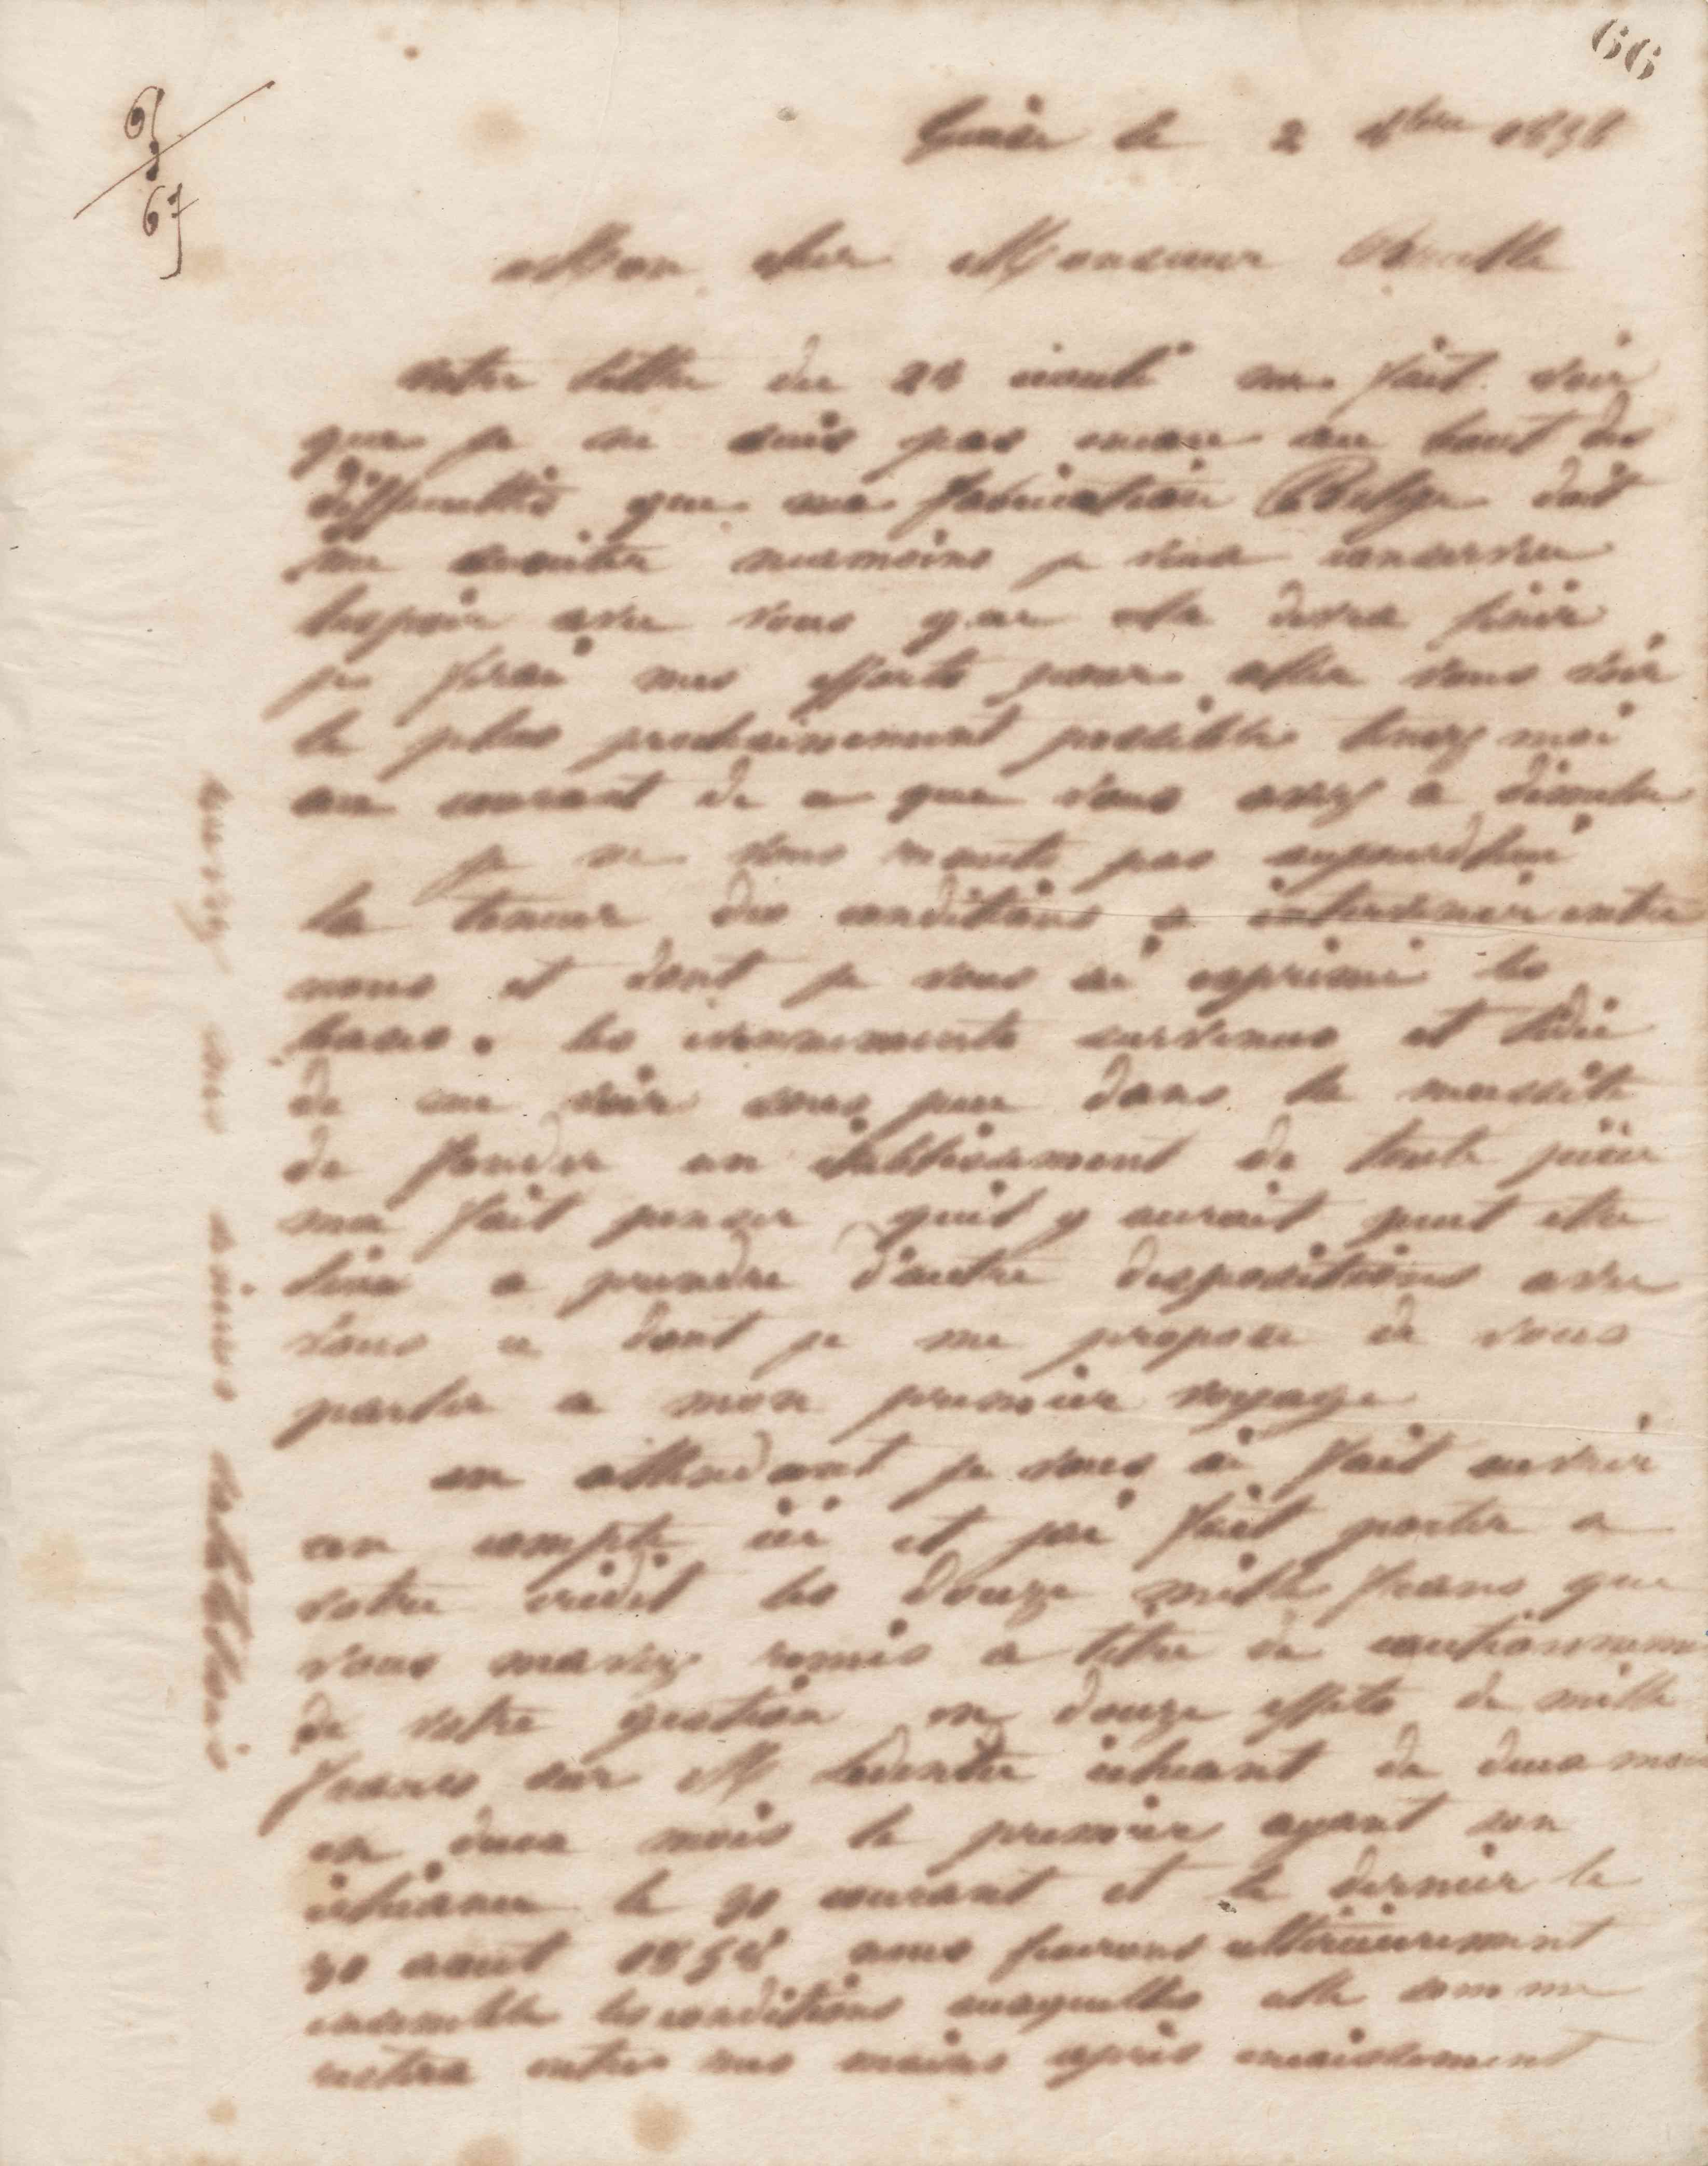 66
67
Guise le 2
Mon cher Monsieur
votre lettre du 28 écoulé me fait voir
que je ne suis pas encore au bout des
difficultés que ma fabrication Belge doit
me susciter neanmoins je veux conserver
lespoir avec vous que cela devra finir
je ferai mes efforts pour aller vous voir
le plus prochainement possible tenez moi
au courant de ce que vous avez a
je ne vous pas aujourdhui
la teneur des conditions a intervenir entre
nous et dont je vous ai exprimé les
bases. les evennements survenus et lidée
de me voir sous peu dans la necessité
de fonder un etablissement de toute pièce
ma fait penser quil y aurait peut etre
lieu a prendre d'autre dispositions avec
vous ce dont je me propose de vous
parler a mon premier voyage
en attendant je vous ai fait ouvrir
un compte ici et jai fait porter a
votre crédit les douze mille francs que
vous mavez remis a titre de cautionnement
de votre gestion en douze effets de mille
francs sur M échéant de deux mois
en deux mois le premier ayant son
échéance le 30 courant et le dernier le
30 aout nous fixerons ultérieurement
ensemble les conditions auxquelles cette somme
restera entre mes mains après encaissement